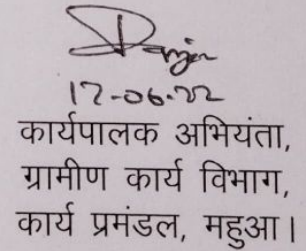 17-06-22
कार्यपालक अभियंता,
ग्रामीण कार्य विभाग,
कार्य प्रमंडल, महुआ।